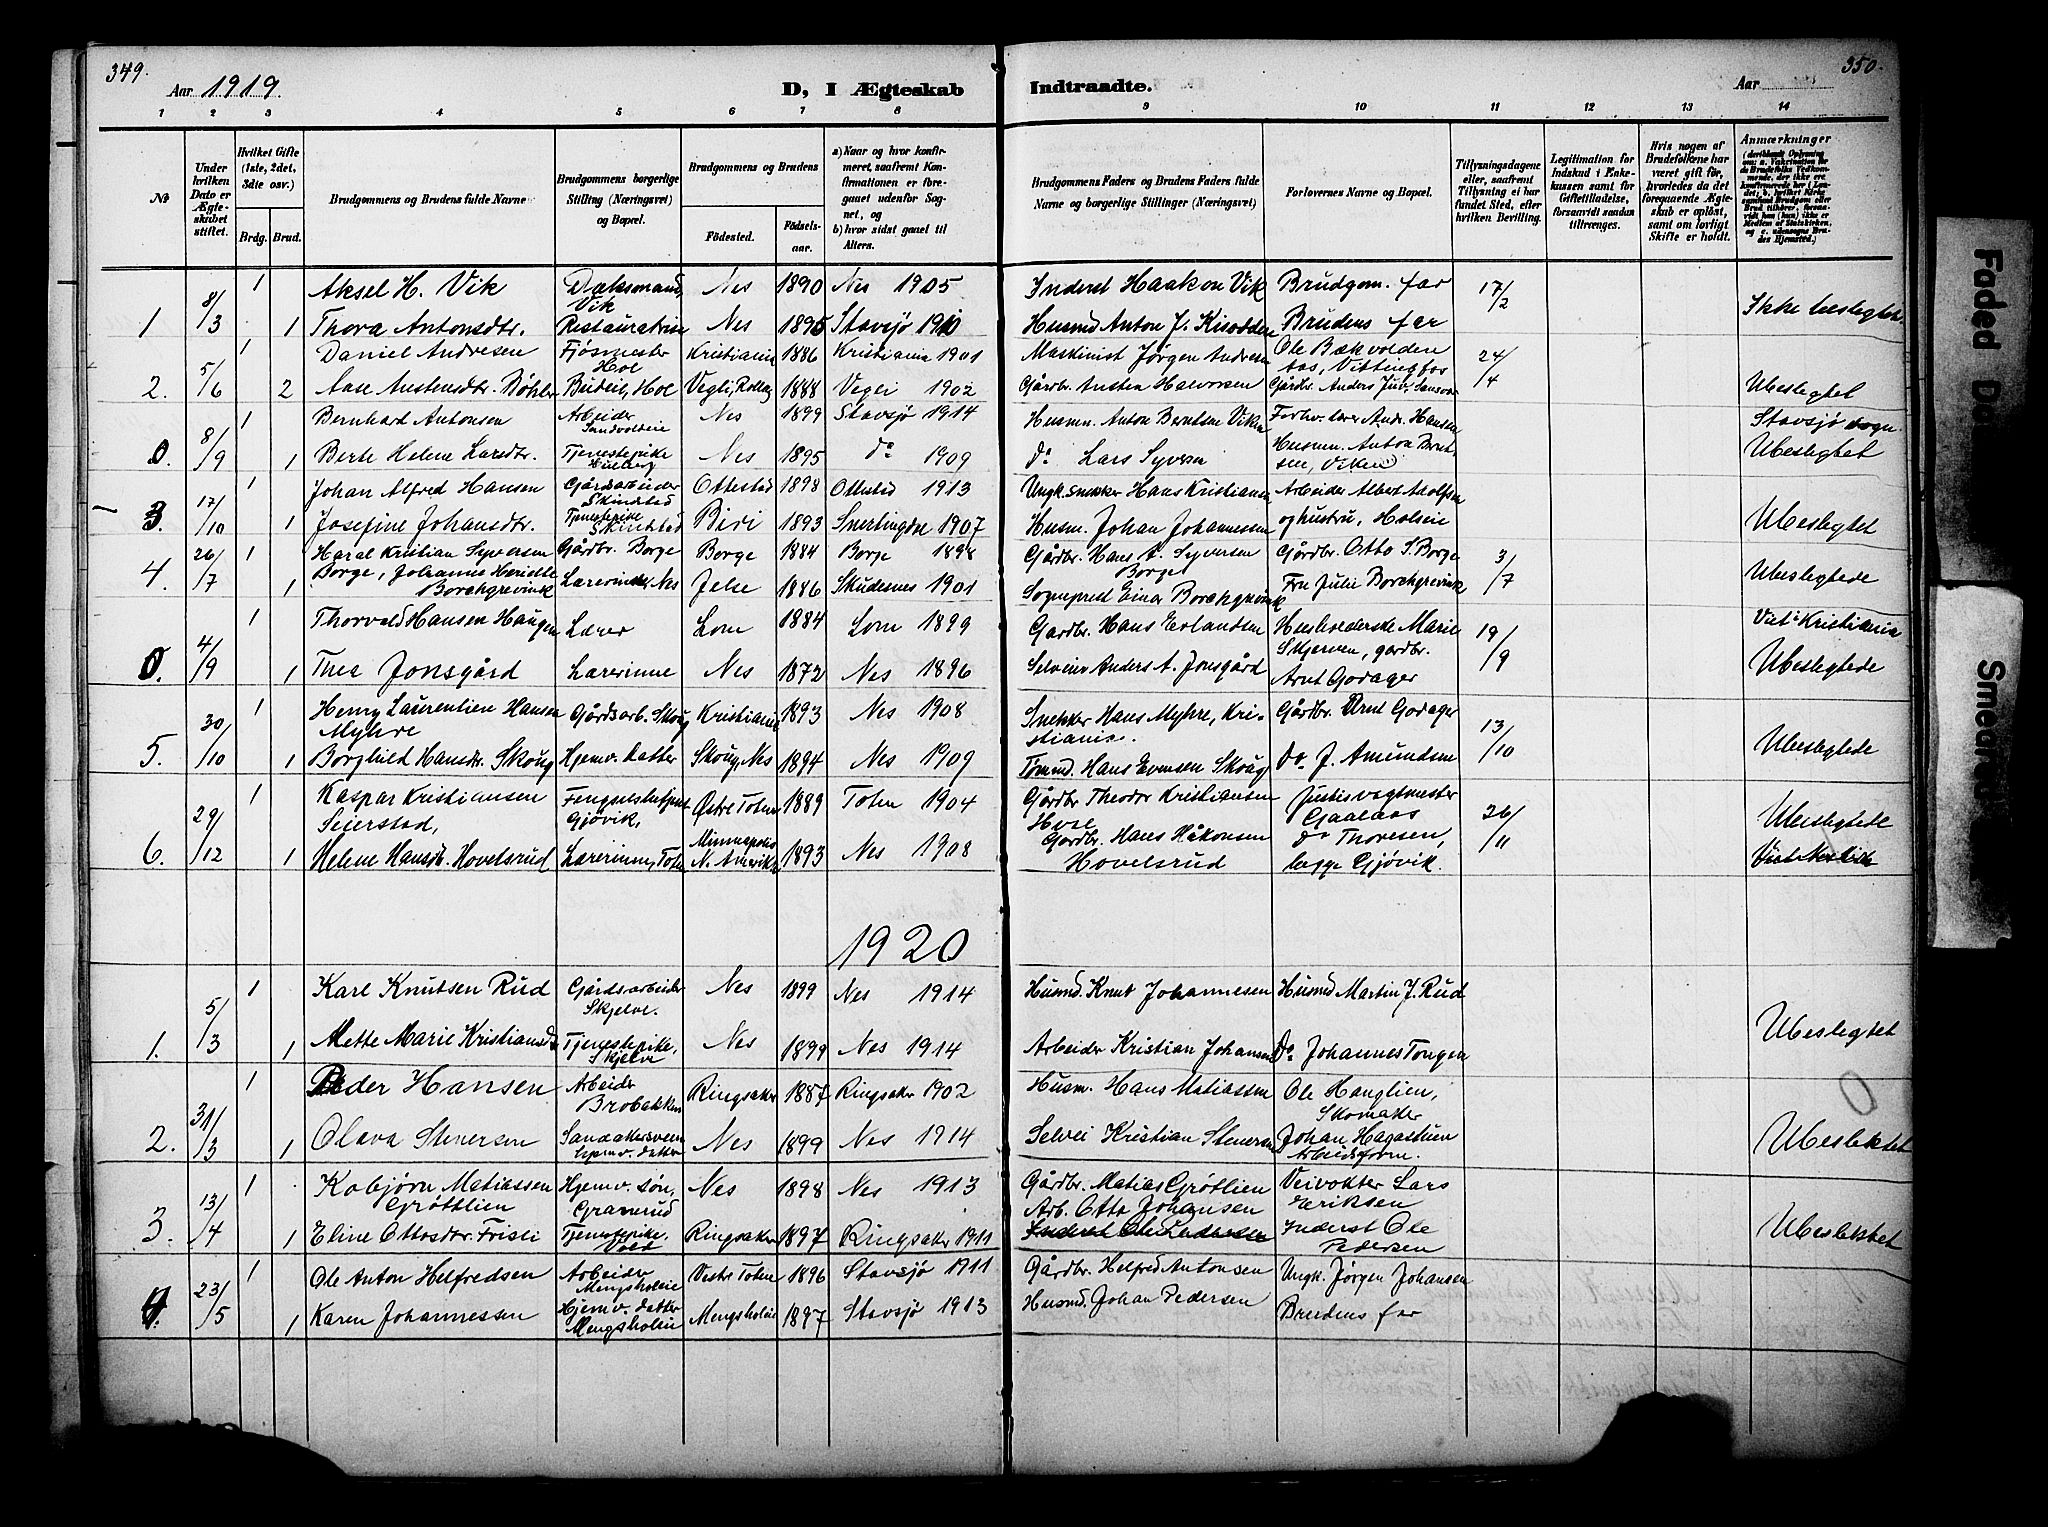 349.
Aar 1919.
D, I Ægteskab
Indtraadte.
Aar
350.
1 2 3 4 5 6 7 8 9 10 11 12 13 14
№
Under hvilken Dato er Ægteskabet stiftet.
Hvilket Gifte (1ste, 2det, 3die osv.)
Brdg. Brud.
Brudgommens og Brudens fulde Navne
Brudgommens borgerlige Stilling (Næringsvei) og Bopæl.
Brudgommens og Brudens
Fødested.
Fødselsaar.
a) Naar og hvor konfirmeret, saafremt Konfirmationen er foregaaet udenfor Sognet, og
b) hvor sidst gaaet til Alters.
Brudgommens Faders og Brudens Faders fulde Navne og borgerlige Stillinger (Næringsvei)
Forlovernes Navne og Bopæl.
Tillysningsdagene eller, saafremt Tillysning ei har fundet Sted, efter hvilken Bevilling.
Legitimation for Indskud i Enkekassen samt for Giftetilladelse, forsaavidt saadan tiltrænges.
Hvis nogen af Brudefolkene har været gift før, hvorledes da det foregaaende Ægteskab er opløst, samt om lovligt Skifte er holdt.
Anmærkninger
1 8/3 1 Aksel H. Vik Dæksmand, Vik Nes 1890 Nes 1905 Inderst Haakon Vik Brudgom. far 17/2
1 Thora Antonsdtr. Nes 1895 Stavsjø 1910 Husmd Anton J. Brudens far Ikke beslegtet
2. 5/6 1 Daniel Andresen Fjøsmester Hol Kristiania 1886 Kristiania 1901 Maskinist Jørgen Andresen Ole Bækvolden 24/4
2 Aase Austensdtr. Bøhler Budeie, Hol Vegli, Rollag 1888 Vegli 1902 Gårdbr. Austen Halvorsen Gårdbr. Anders Juv, Ubeslegtet
0. 8/9 1 Bernhard Antonsen Arbeider Nes 1899 Stavsjø 1914 Husmn. Anton Berntsen Viken Forhv. lærer Andr. Hansen Stavsjø sogn
1 Berte Helene Larsdtr. Tjenestepike Nes 1895 do 1909 Do Lars Syversen Husmn. Anton Berntsen, Viken Ubeslegtet
3. 17/10 1 Johan Alfred Hansen Gårdsarbeider Skinstad Ottestad 1898 Ottestad 1913 Ungk. snekker Hans Kristiansen Arbeider Albert Adolfsen
1 Josefine Johansdtr. Tjenestepike Skinstad Biri 1893 Snertingdal 1907 Husm. Johan Johannessen og hustru, Holseie Ubeslegtet
4. 26/7 1 Haral Kristian Syversen Borge, Gårdbr. Borge Borge 1884 Borge 1898 Gårdbr. Hans A. Syversen Borge Gårdbr. Otto S. Borge 3/7
1 Johanne Henriette Borchgrevink Lærerinde Nes Jelse 1886 Skudesnes 1901 Sogneprest Einar Borchgrevink Fru Julie Borchgrevink Ubeslegtede
0. 4/9 1 Thorvald Hansen Haugen Lærer Lom 1884 Lom 1899 Gardbr. Hans Erlandsen Husholderske Marie Skjerven, gardbr. 19/9 Viet i Kristiania
1 Thea Jonsgård Lærerinne Nes 1872 Nes 1896 Selveier Anders A. Jonsgård Arnt Godager Ubeslegtede
5. 30/10 1 Henry Laurentien Hansen Myhre Gårdsarb. Skoug Kristiania 1893 Nes 1908 Snekker Hans Myhre, Kristiania. Gårdbr. Arnt Godager 13/10
1 Borghild Hansdtr. Skoug Hjemv. datter Skoug, Nes 1894 Nes 1909 Tømmd. Hans Evensen Skoug Do J. Amundsen Ubeslegtede
6. 29/12 1 Kaspar Kristiansen Seierstad, Fengselsbetjent Gjøvik, Østre Toten 1889 Toten 1904 Gårdbr Theodor Kristiansen Justisvagtmester Gaalaas 26/11 Ubeslegtede
1 Helene Hansdtr. Hovelsrud Lærerinne, Toten Minneapolis N. Amerika 1893 Nes 1908 Gårdbr. Hans Håkonsen Hovelsrud Do Thoresen, begge Gjøvik.
1920
1. 5/3 1 Karl Knutsen Rud Gårdsarbeider Skjelve. Nes 1899 Nes 1914 Husmd. Knut Johannesen Husmd Martin J. Rud
1 Mette Marie Kristiansd. Tjenestepike, Skjelve Nes 1899 Nes 1914 Arbeider Kristian Johansen Do Johannes Tongen Ubeslegtet
2. 31/3 1 Peder Hansen Arbeider Brobakken Ringsaker 1887 Ringsaker 1902 Husm. Hans Matiassen Ole Hanglien, Skomaker
1 Olava Stenersen Sandakersveen hjemv. datter Nes 1899 Nes 1914 Selvei Kristian Stenersen Johan Hagastuen Arbeidsform. Ubeslektet
3. 13/4 1 Kobjørn Matiassen Grøttlien Hjemv. søn, Granerud Nes 1898 Nes 1913 Gårdbr. Matias Grøtlien Veivokter Lars Eriksen
1 Eline Ottosdtr. Fristi Tjenestepike, Vold Ringsaker 1897 Ringsaker 1911 Arb. Otto Johansen Inderst Ole Pedersen Inderst Ole Pedersen Ubeslektet
4. 23/5 1 Ole Anton Helfredsen Arbeider Mengsholeie Vestre Toten 1896 Stavsjø 1911 Gårdbr. Helfred Antonsen Ungk. Jørgen Johansen
1 Karen Johannessen Hjemv. datter Mengsholeie Mengsholeie 1897 Stavsjø 1913 Husmd. Johan Pedersen Brudens far
Faded
Smeared